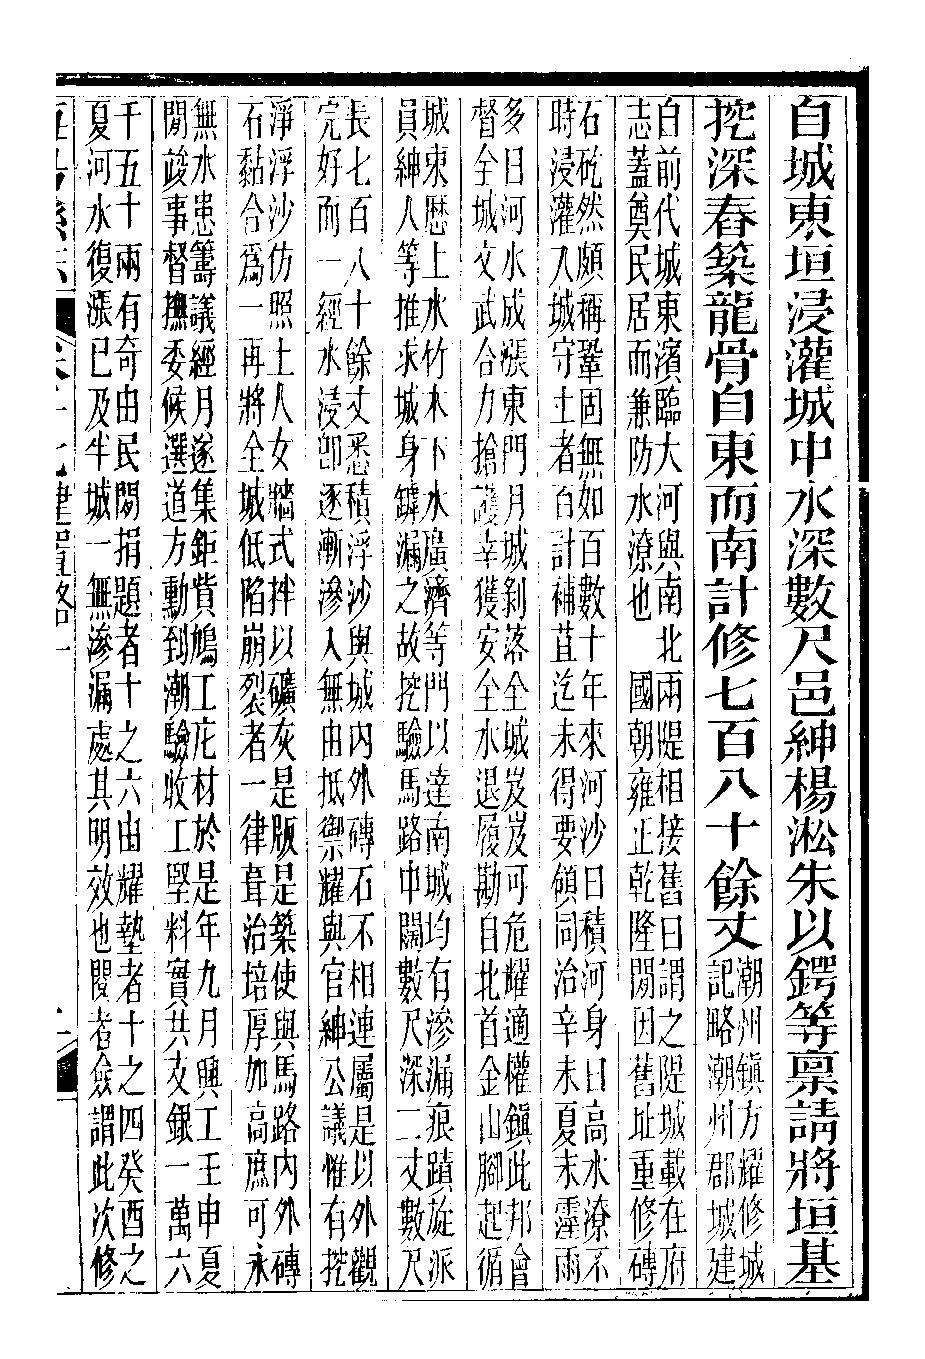 自城東垣浸灌城中水深數尺邑紳楊淞朱以鍔等禀請將垣基
挖深舂築龍骨自東而南計修七百八十餘丈
潮州鎮方耀修城
記略潮州郡城建
自前代城東濱臨大河與南北兩隄相接舊曰謂之隄城載在府
志蓋奠民居而兼防水潦也 國朝雍正乾隆閒因舊址重修磚
石矻然頗稱鞏固無如百數十年來河沙日積河身日高水潦不
時浸灌入城守土者百計補苴迄未得要領同治辛未夏末霪雨
多日河水成漲東門月城剝落全城岌岌可危耀適權鎮此邦會
督全城文武合力搶護幸獲安全水退履勘自北首金山腳起循
城東歷上水竹木下水廣濟等門以達南城均有滲漏痕蹟旋派
員紳人等推求城身罅漏之故挖驗馬路中闊數尺深二丈數尺
長七百八十餘丈悉積浮沙與城內外磚石不相連屬是以外觀
完好而一經水浸即逐漸滲入無由抵禦耀與官紳公議惟有挖
淨浮沙仿照土人女牆式拌以礦灰是版是築使與馬路內外磚
石黏合爲一再將全城低陷崩裂者一律葺治培厚加高庶可永
無水患籌議經月遂集鉅貲鳩工庀材於是年九月興工壬申夏
閒竣事督撫委候選道方勳到潮驗收工堅料實共支銀一萬六
千五十兩有奇由民閒捐題者十之六由耀墊者十之四癸酉之
夏河水復漲已及半城一無滲漏處其明效也閱者僉謂此次修